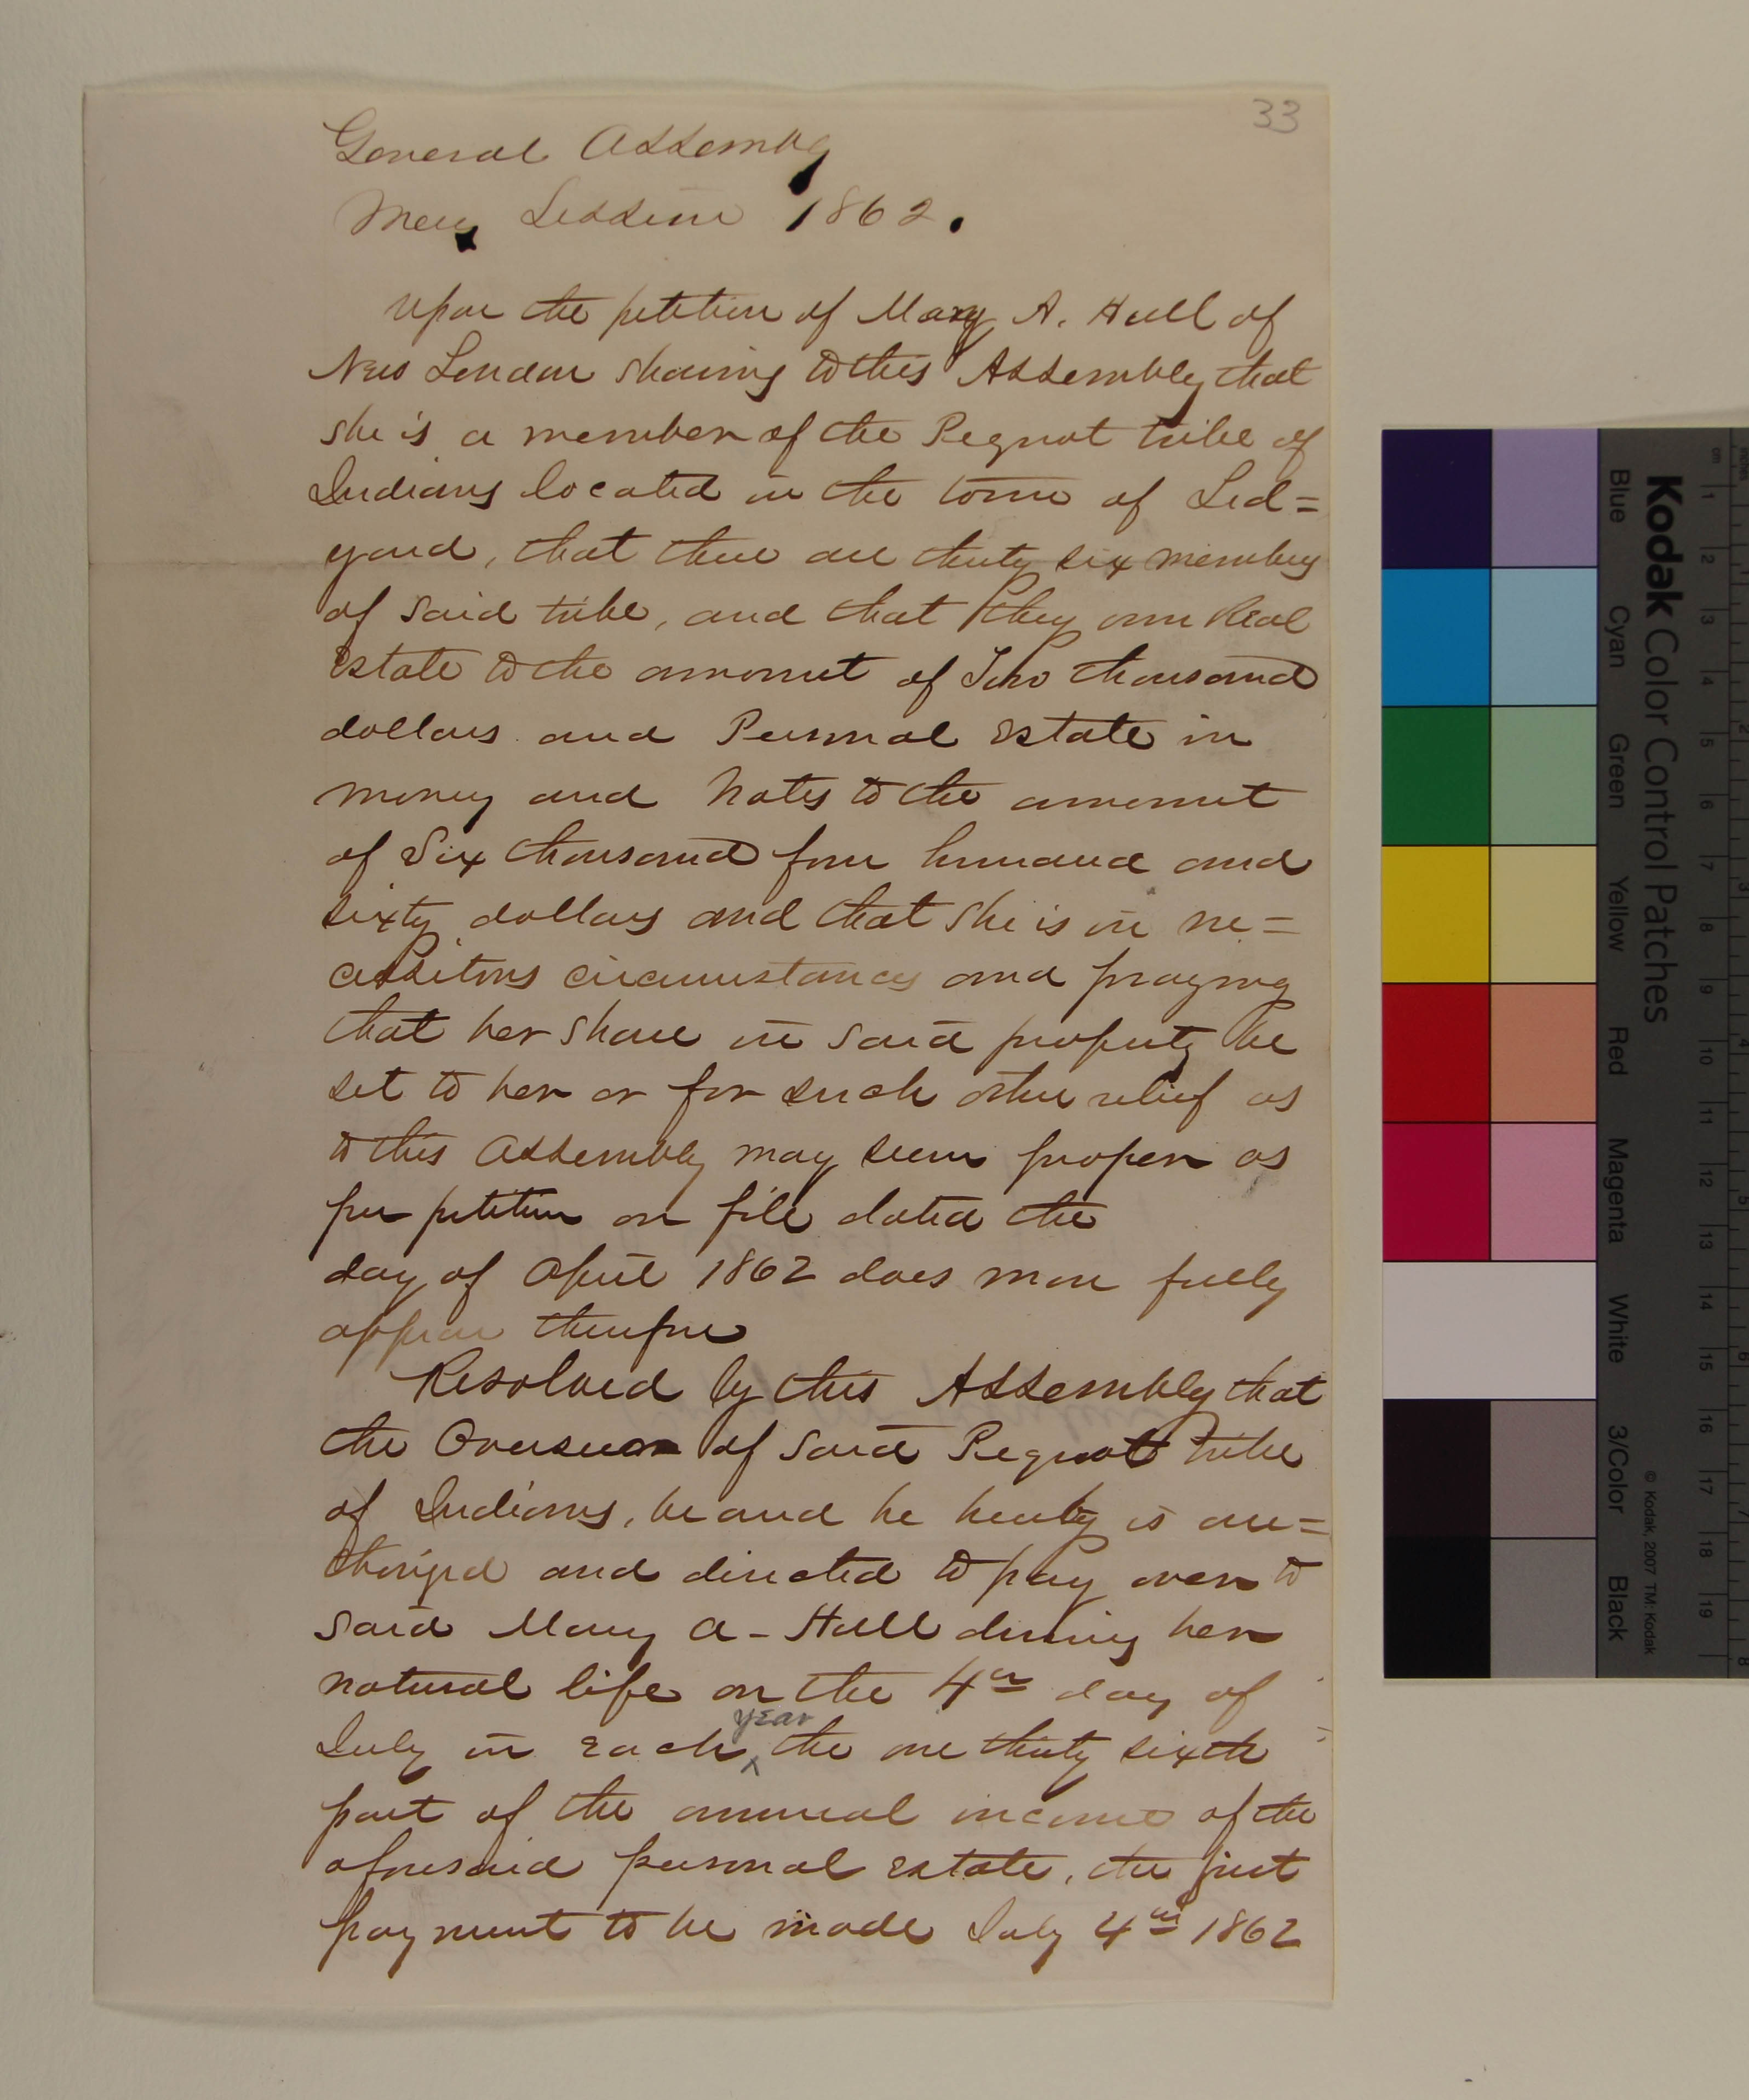 33
General Assembly
May Session 1862.
Upon the petition of Mary A. Hull of
New London showing to this Assembly that
she is a member of the Pequot tribe of
Indians located in the town of Led=
yard, that there are thirty six members
of said tribe, and that they own Real
Estate to the amount of Two thousand
dollars and Personal Estate in
money and Notes to the amount
of Six thousand four hundred and
sixty dollars and that she is in ne=
cessitous circumstances and praying
that her share in said property be
set to her or for such other relief as
to this Assembly may seem proper as
per petition on file dated the
day of April 1862 does more fully
appear therefore
Resolved by this Assembly that
the Overseer of said Pequot tribe
of Indians, be and he hereby is au=
thorized and directed to pay over to
said Mary A - Hull during her
natural life on the 4th day of
July in each year the one thirty sixth
part of the annual income of the
aforesaid personal estate, the first
payment to be made July 4th 1862
Kodak Color Control Patches
© Kodak, 2007 TM: Kodak
Blue Cyan Green Yellow Red Magenta White 3/Color Black
cm 1 2 3 4 5 6 7 8 9 10 11 12 13 14 15 16 17 18 19